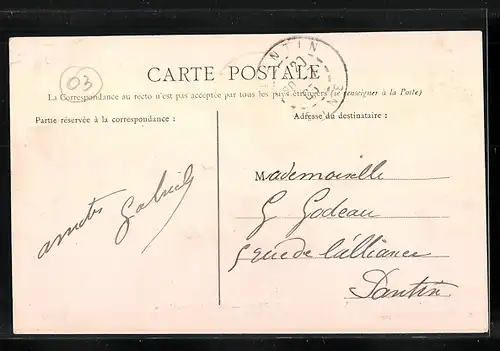 PANTIN
03
CARTE POSTALE
La Correspondance au recto n'est pas acceptée par tous les pays étrangers (se renseigner à la Poste)
Partie réservée à la correspondance :
Adresse du destinataire :
Mademoiselle
G Godeau
rue de l'alliance
Pantin
amitiés Gabriel